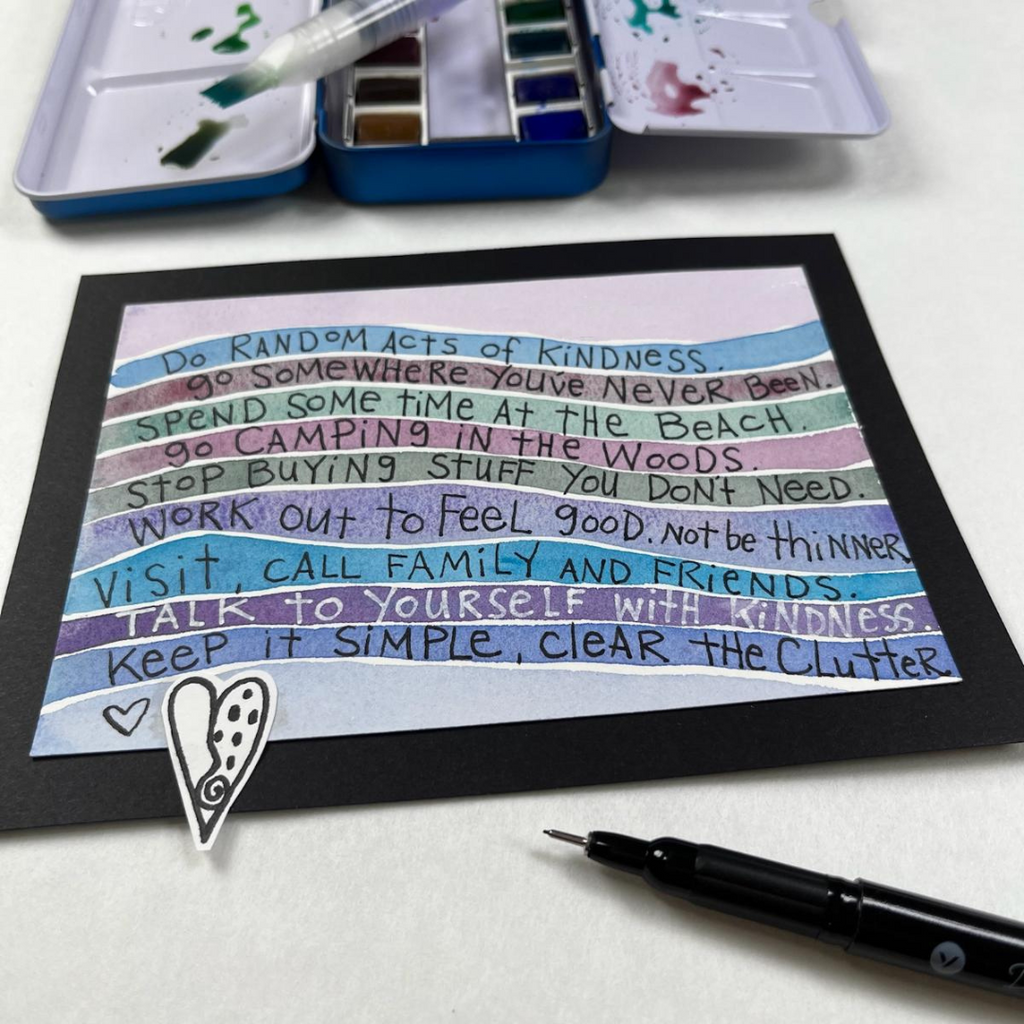 Do RANDOM Acts of KiNDNess.
go SOMEWHERE You've NeVER BeeN.
SPeND SOMe tiMe At tHe BeACH.
go CAMPiNg iN tHe WOODS.
StoP BUYiNg StuFF You DoN't NeeD.
WORK out to FeeL gooD. Not be thiNNeR
Visit, CALL FAMiLY AND FRieNDS.
TALK to YOURSeLF witH KiNDNeSS.
KeeP it SiMPLe, cleAR tHe CLutteR